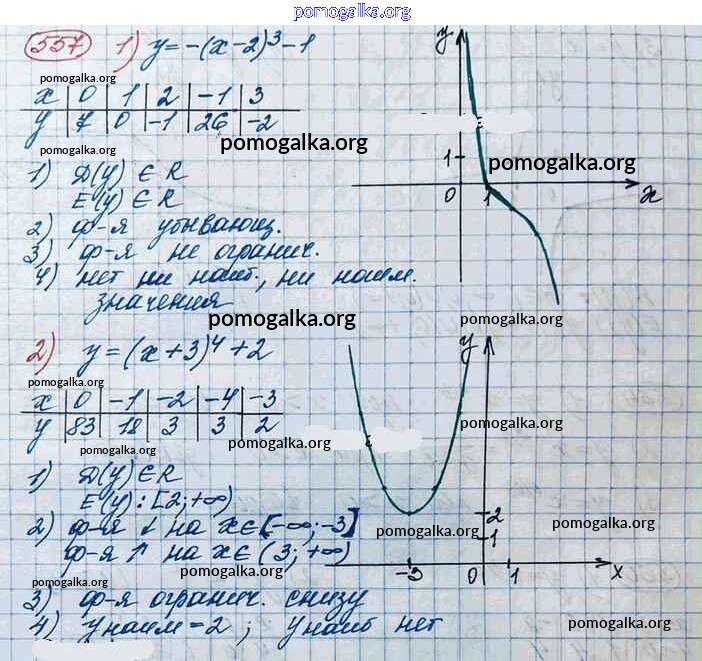 pomogalka.org
557 1) y = -(x-2)³-1
pomogalka.org
x | 0 | 1 | 2 | -1 | 3
y | 7 | 0 | -1 | 26 | -2
pomogalka.org
pomogalka.org
1) D(y) ∈ R
E(y) ∈ R
2) ф-я убывающ.
3) ф-я не огранич.
4) нет ни наиб., ни наим.
значения
pomogalka.org
y
1
0
1
x
pomogalka.org
pomogalka.org
2) y = (x+3)⁴+2
pomogalka.org
x | 0 | -1 | -2 | -4 | -3
y | 83 | 18 | 3 | 3 | 2
pomogalka.org
pomogalka.org
1) D(y) ∈ R
E(y): [2; +∞)
2) ф-я ↓ на x∈[-∞; -3]
ф-я ↑ на x∈(3; +∞)
pomogalka.org
pomogalka.org
3) ф-я огранич. снизу
4) y наим = 2 ; y наиб нет
y
pomogalka.org
2
1
pomogalka.org
-3
0
1
x
pomogalka.org